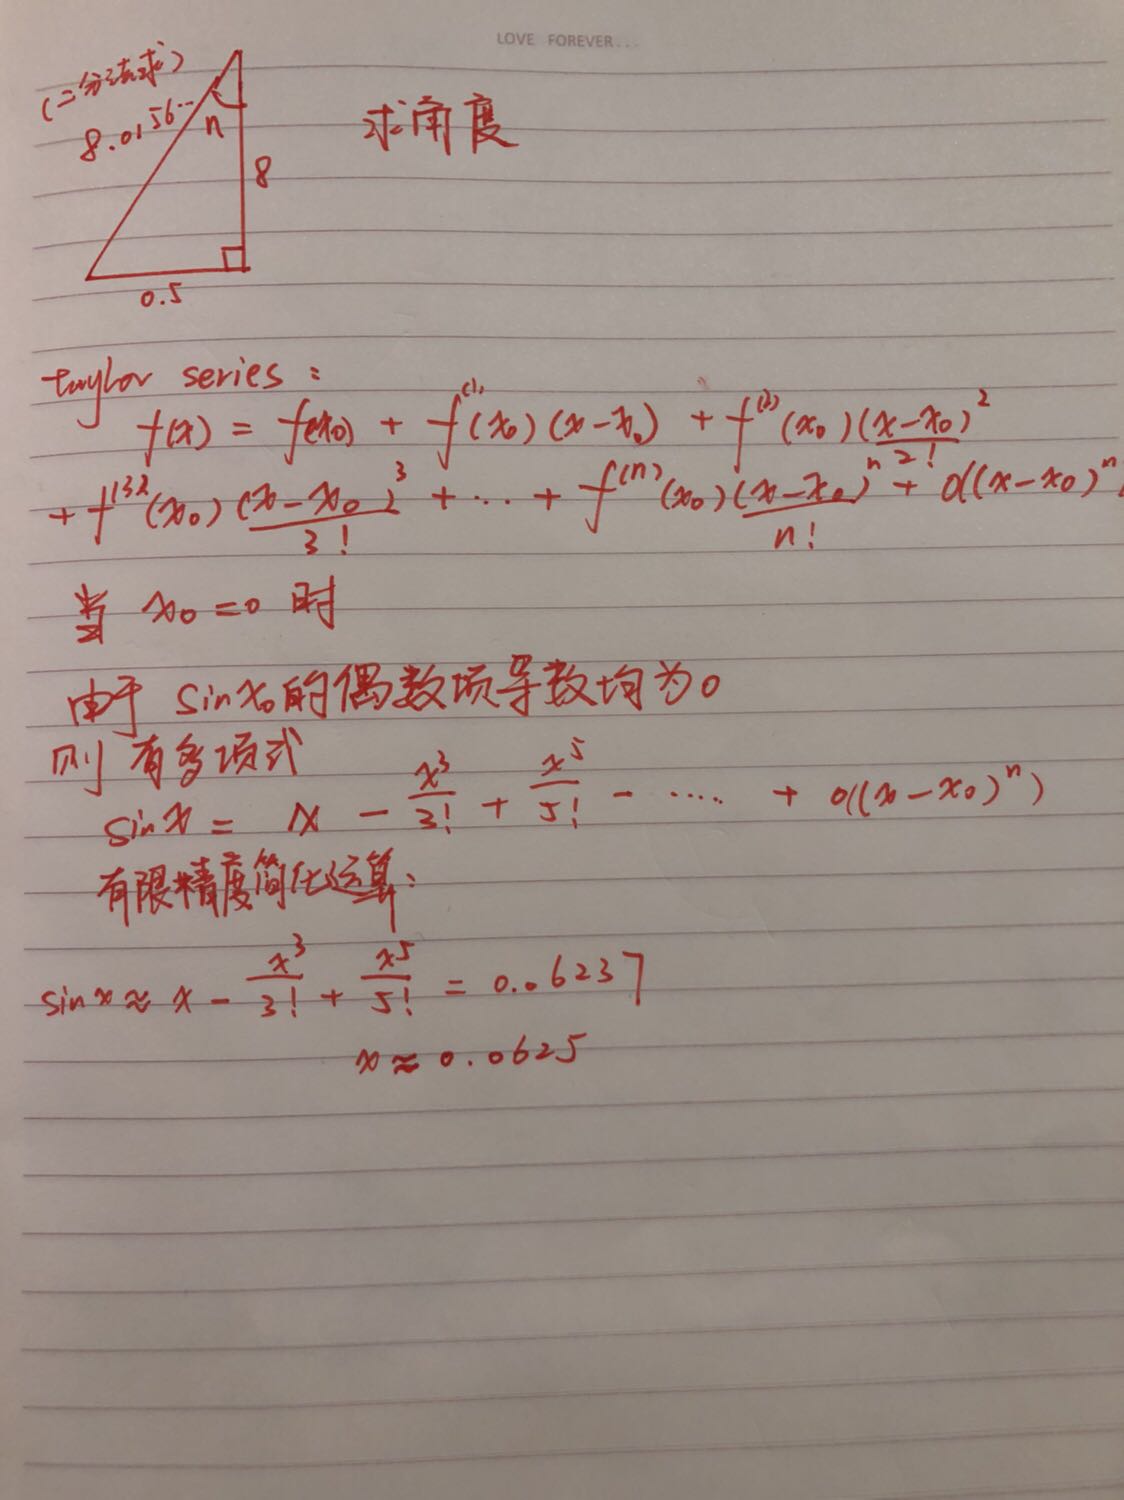 LOVE FOREVER...
(二分法求)
8.0156...
n
求角度
8
0.5
taylor series:
f(x) = f(x₀) + f⁽¹⁾(x₀)(x-x₀) + f⁽²⁾(x₀)(x-x₀)²/2!
+ f⁽³⁾(x₀)(x-x₀)³/3! + ... + f⁽ⁿ⁾(x₀)(x-x₀)ⁿ/n! + o((x-x₀)ⁿ)
当 x₀=0 时
由于 sinx₀的偶数项导数均为0
则有多项式
sinx = x - x³/3! + x⁵/5! - .... + o((x-x₀)ⁿ)
有限精度简化运算:
sinx ≈ x - x³/3! + x⁵/5! = 0.06237
x ≈ 0.0625